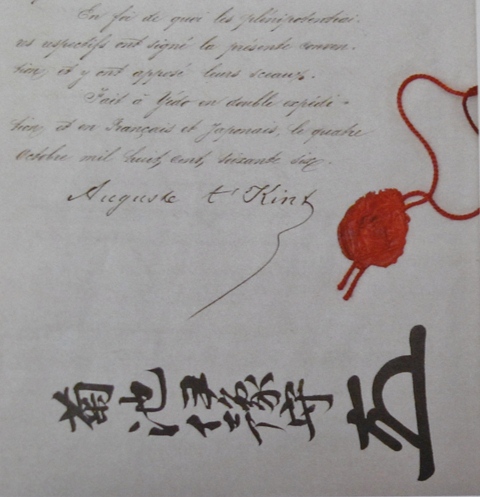 En foi de quoi les plénipotentiai-
res respectifs ont signé la présente conven-
tion et y ont apposé leurs sceaux.
Fait à Yédo en double expédi-
tion et en Français et Japonais, le quatre
Octobre mil huit cent soixante six.
Auguste t'Kint
菊池伊豫守